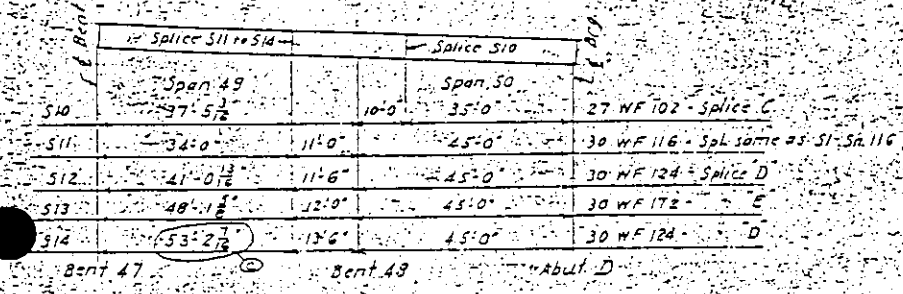 ℄ Bent
Splice S11 to S14
Splice S10
℄ Brg
Span 49
Span 50
S10 37'-5 3/16" 10'-0" 35'-0" 27 WF 102 - Splice C
S11 34'-0" 11'-0" 45'-0" 30 WF 116 - Spl. same as S1-Sn. 116
S12 41'-0 13/16" 11'-6" 45'-0" 30 WF 124 - Splice D
S13 48'-1 12'-0" 45'-0" 30 WF 172 - " E
S14 53'-2 7/16" 13'6" 45'0" 30 WF 124 - " D
Bent 47 © Bent 48 Abut. D